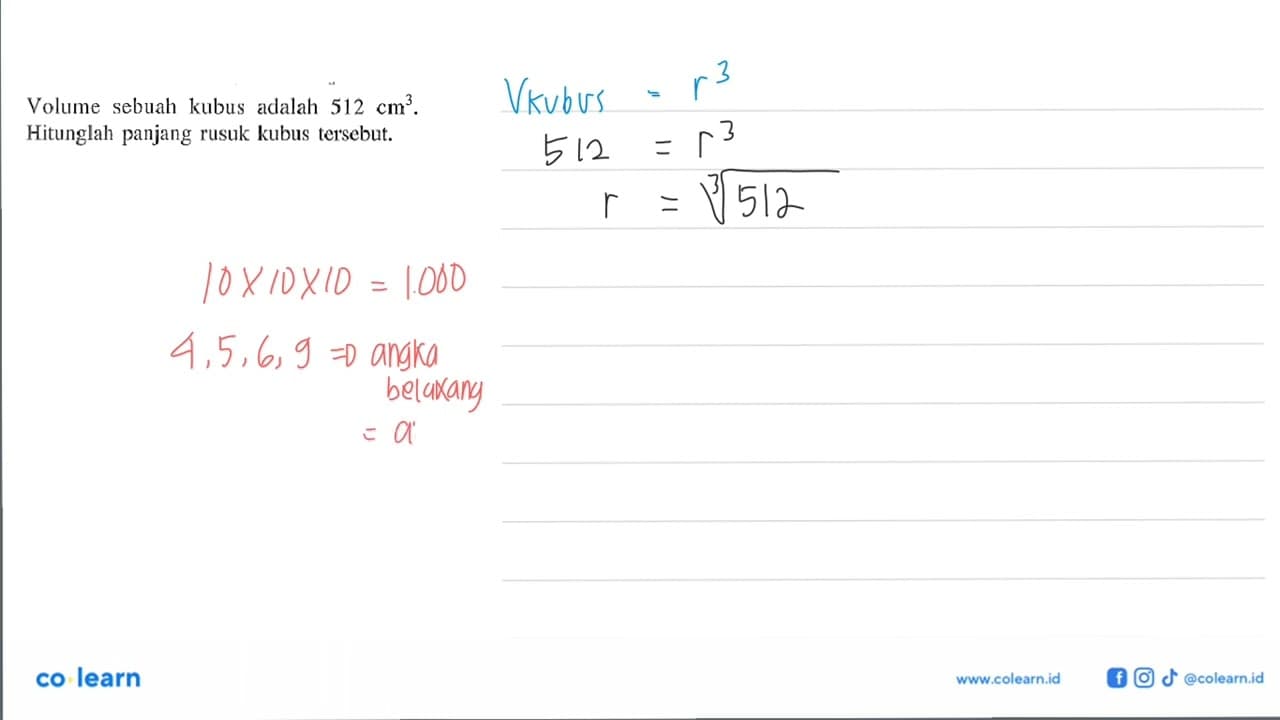 Volume sebuah kubus adalah 512 cm³.
Hitunglah panjang rusuk kubus tersebut.
Vkubus = r³
512 = r³
r = ∛512
10 X 10 X 10 = 1.000
4, 5, 6, 9 => angka
belakang
= a
co learn
www.colearn.id
@colearn.id